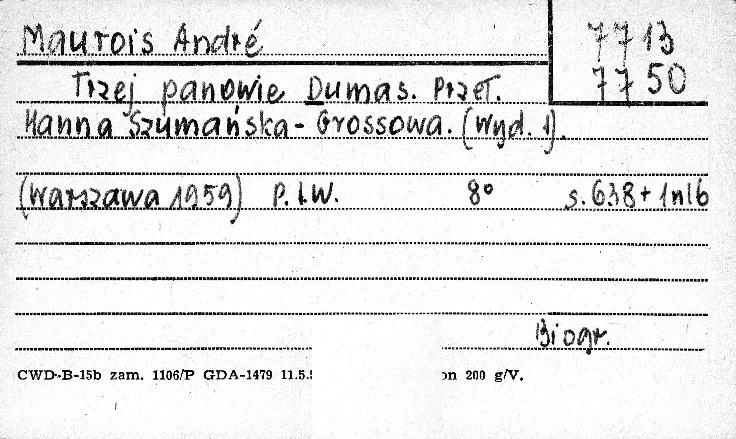 Maurois André 7713
7750
Trzej panowie Dumas. Przeł.
Hanna Szumańska-Grossowa. (Wyd. 1).
(Warszawa 1959) P.I.W. 8° s. 638+1nlb
Biogr.
CWD-B-15b zam. 1106/P GDA-1479 11.5. on 200 g/V.